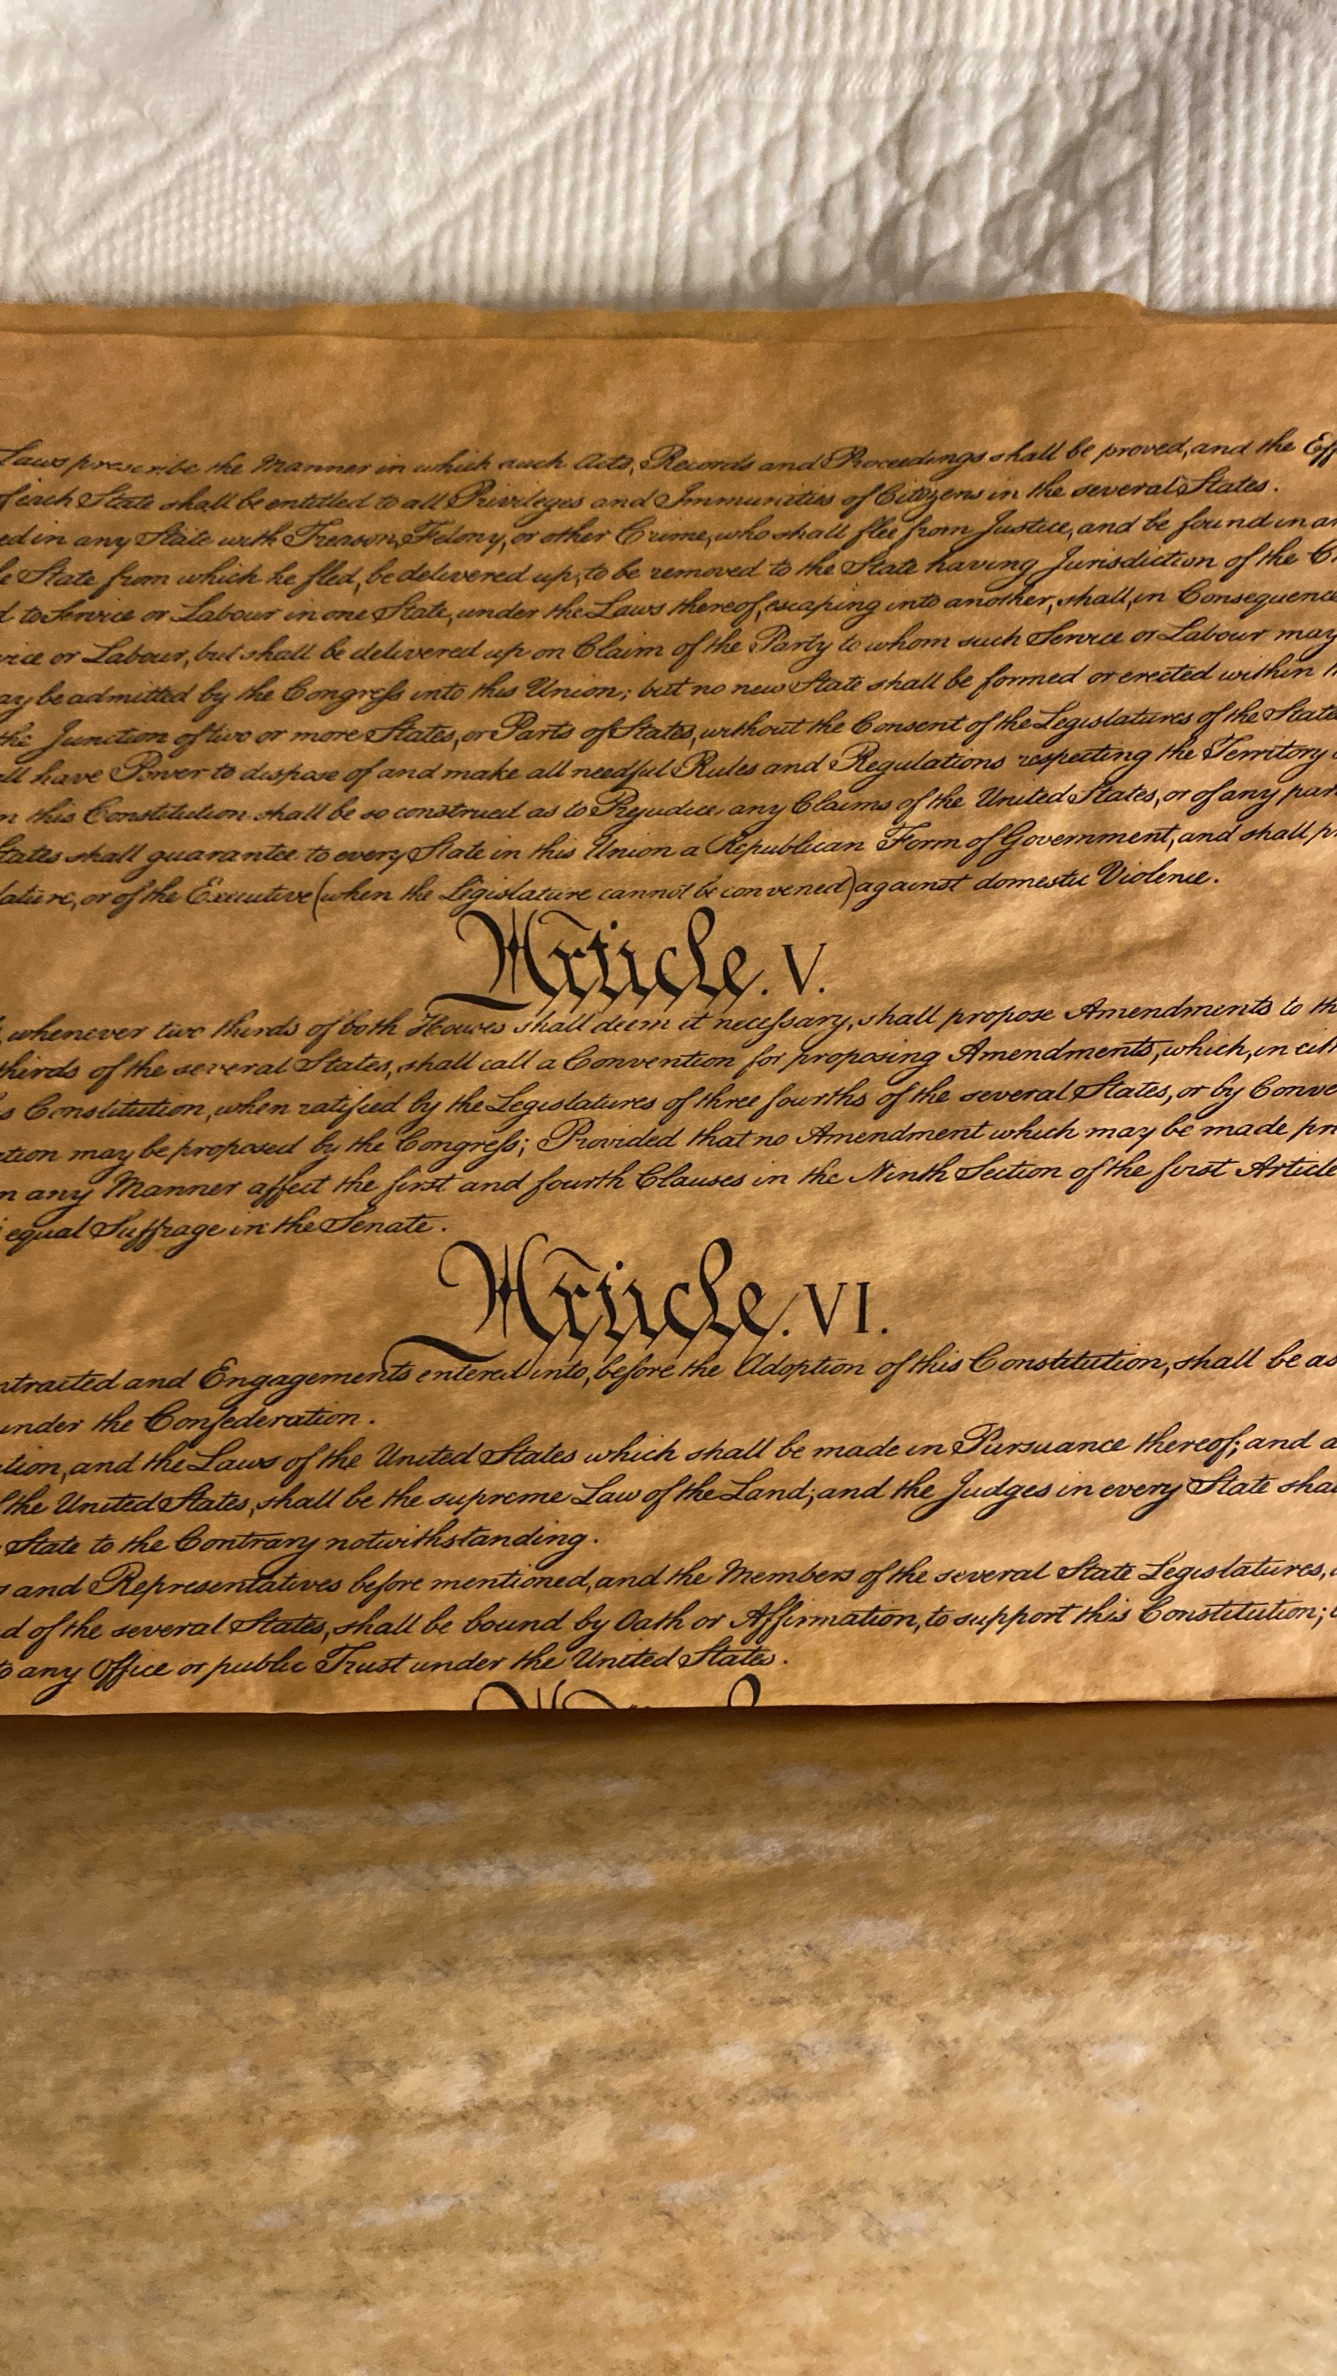 Laws prescribe the Manner in which such Acts, Records and Proceedings shall be proved, and the Eff
of each State shall be entitled to all Privileges and Immunities of Citizens in the several States.
ed in any State with Treason, Felony, or other Crime, who shall flee from Justice, and be found in an
e State from which he fled, be delivered up, to be removed to the State having Jurisdiction of the C
d to Service or Labour in one State, under the Laws thereof, escaping into another, shall, in Consequence
vice or Labour, but shall be delivered up on Claim of the Party to whom such Service or Labour may
ay be admitted by the Congreſs into this Union; but no new State shall be formed or erected within
the Junction of two or more States, or Parts of States, without the Consent of the Legislatures of the State
all have Power to dispose of and make all needful Rules and Regulations respecting the Territory
n this Constitution shall be so construed as to Prejudice any Claims of the United States, or of any par
States shall guarantee to every State in this Union a Republican Form of Government, and shall pr
lature, or of the Executive (when the Legislature cannot be convened) against domestic Violence.
Article. V.
, whenever two thirds of both Houses shall deem it neceſsary, shall propose Amendments to th
thirds of the several States, shall call a Convention for proposing Amendments, which, in eith
s Constitution, when ratified by the Legislatures of three fourths of the several States, or by Conve
ation may be proposed by the Congreſs; Provided that no Amendment which may be made pr
n any Manner affect the first and fourth Clauses in the Ninth Section of the first Article
equal Suffrage in the Senate.
Article. VI.
ntracted and Engagements entered into, before the Adoption of this Constitution, shall be as
under the Confederation.
tion, and the Laws of the United States which shall be made in Pursuance thereof; and a
f the United States, shall be the supreme Law of the Land; and the Judges in every State shal
State to the Contrary notwithstanding.
s and Representatives before mentioned, and the Members of the several State Legislatures,
d of the several States, shall be bound by Oath or Affirmation, to support this Constitution;
to any Office or public Trust under the United States.